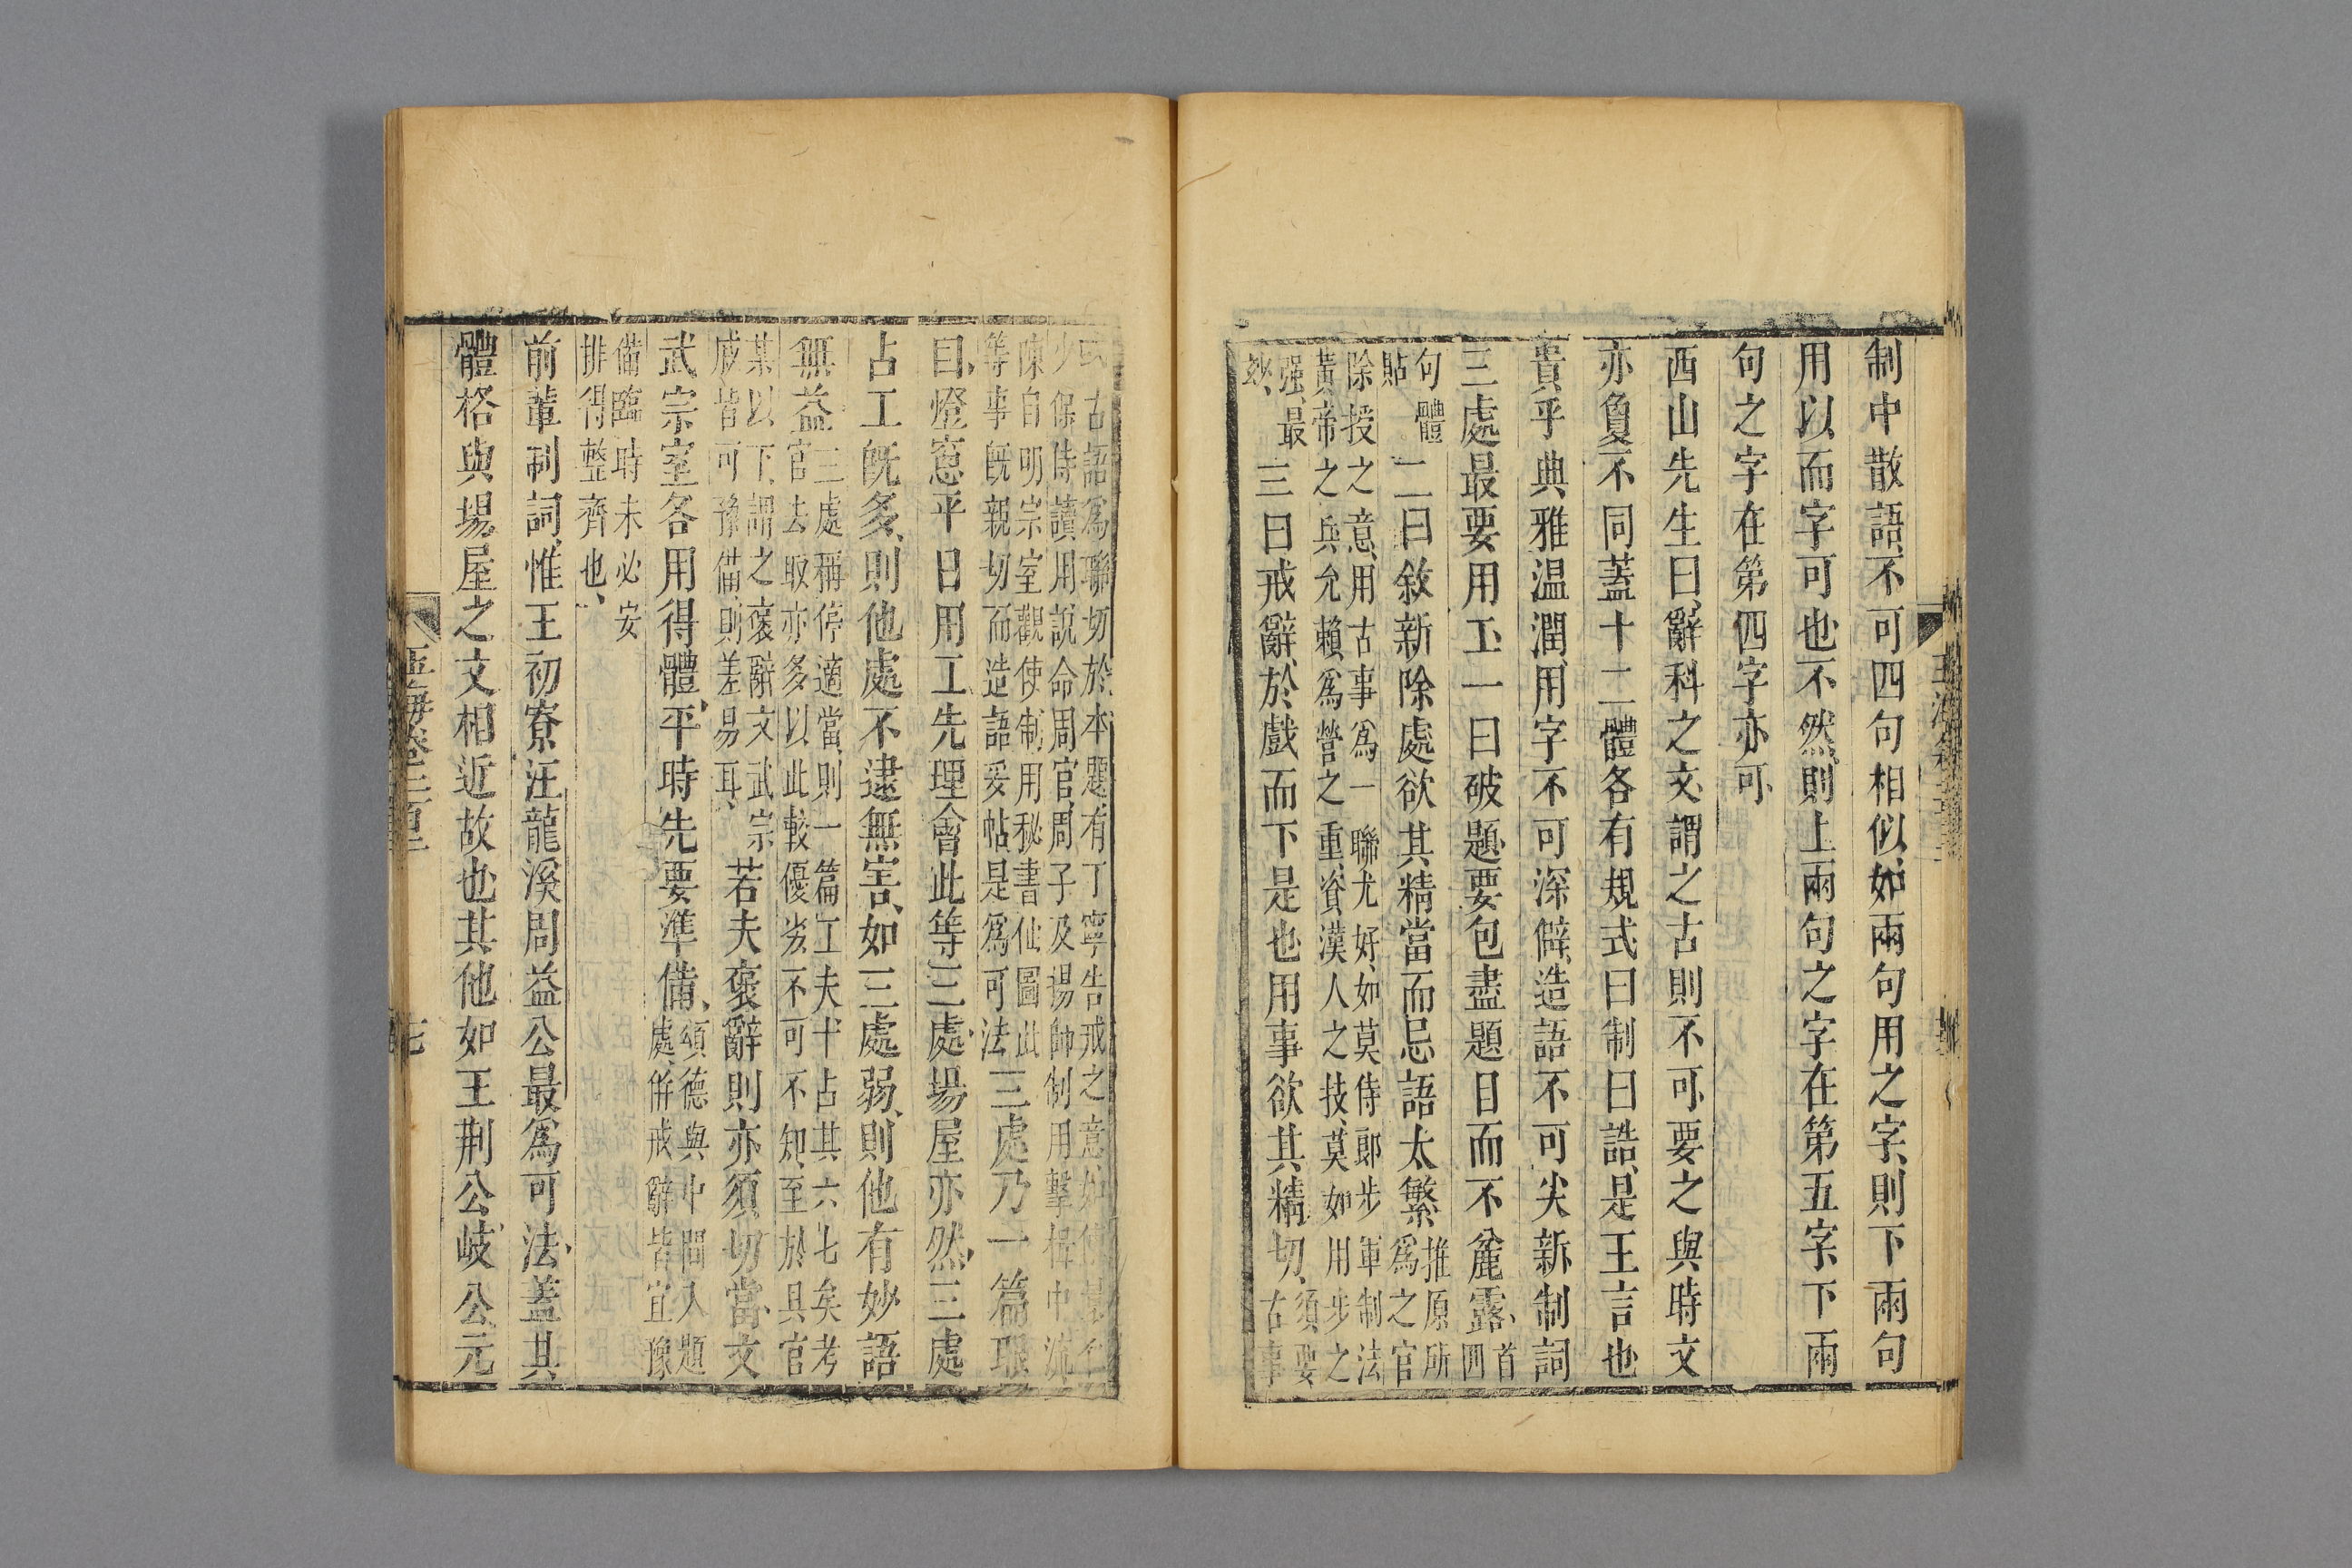 制中散語不可四句相似如兩句用之字則下兩句
用以而字可也不然則上兩句之字在第五字下兩
句之字在第四字亦可
西山先生曰辭科之文謂之古則不可要之與時文
亦敻不同蓋十二體各有規式曰制曰誥是王言也
貴乎典雅温潤用字不可深僻造語不可尖新制詞
三處最要用工一曰破題要包盡題目而不麄露首
四
句體
貼
二曰敘新除處欲其精當而忌語太繁推原所
爲之官
除授之意用古事爲一聯尤好如莫侍郎步軍制法
黃帝之兵允賴爲營之重資漢人之技莫如用步之
强最
妙
三曰戒辭於戲而下是也用事欲其精切須要
古事
或古語爲聯切於本題有丁寧告戒之意如
少保侍讀用說命周官周子及揚帥制用擊楫中流
陳自明宗室觀使制用秘書仙圖此
等事旣親切而造語妥帖是爲可法
三處乃一篇眼
目燈窻平日用工先理會此等三處場屋亦然三處
占工旣多則他處不逮無害如三處弱則他有妙語
無益
三處稱停適當則一篇工夫十占其六七矣考
官去取亦多以此較優劣不可不知至於具官
某以下謂之褒辭文武宗
戚皆可豫備則差易耳
若夫褒辭則亦須切當文
武宗室各用得體平時先要準備
頌德與中間入題
處併戒辭皆宜豫
備臨時未必安
排得整齊也
前輩制詞惟王初寮汪龍溪周益公最爲可法蓋其
體格與場屋之文相近故也其他如王荆公岐公元